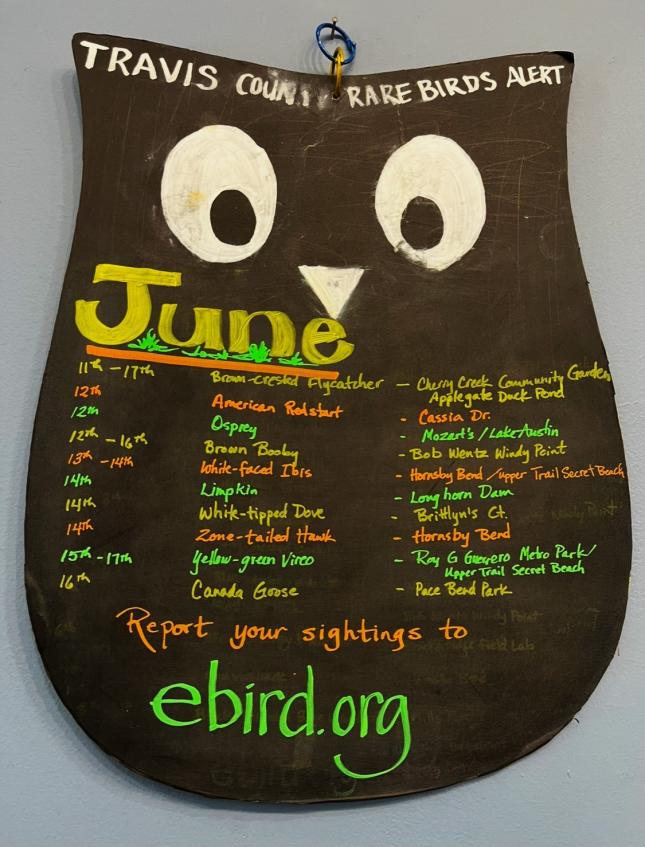 TRAVIS COUNTY RARE BIRDS ALERT
June
11th - 17th Brown-crested Flycatcher - Cherry Creek Community Garden
Applegate Duck Pond
12th American Redstart - Cassia Dr.
12th Osprey - Mozart's / Lake Austin
12th - 16th Brown Booby - Bob Wentz Windy Point
13th - 14th White-faced Ibis - Hornsby Bend / upper Trail Secret Beach
14th Limpkin - Longhorn Dam
14th White-tipped Dove - Brittlyn's Ct.
14th Zone-tailed Hawk - Hornsby Bend
15th - 17th Yellow-green Vireo - Roy G Guerrero Metro Park/
Upper Trail Secret Beach
16th Canada Goose - Pace Bend Park
Report your sightings to
ebird.org